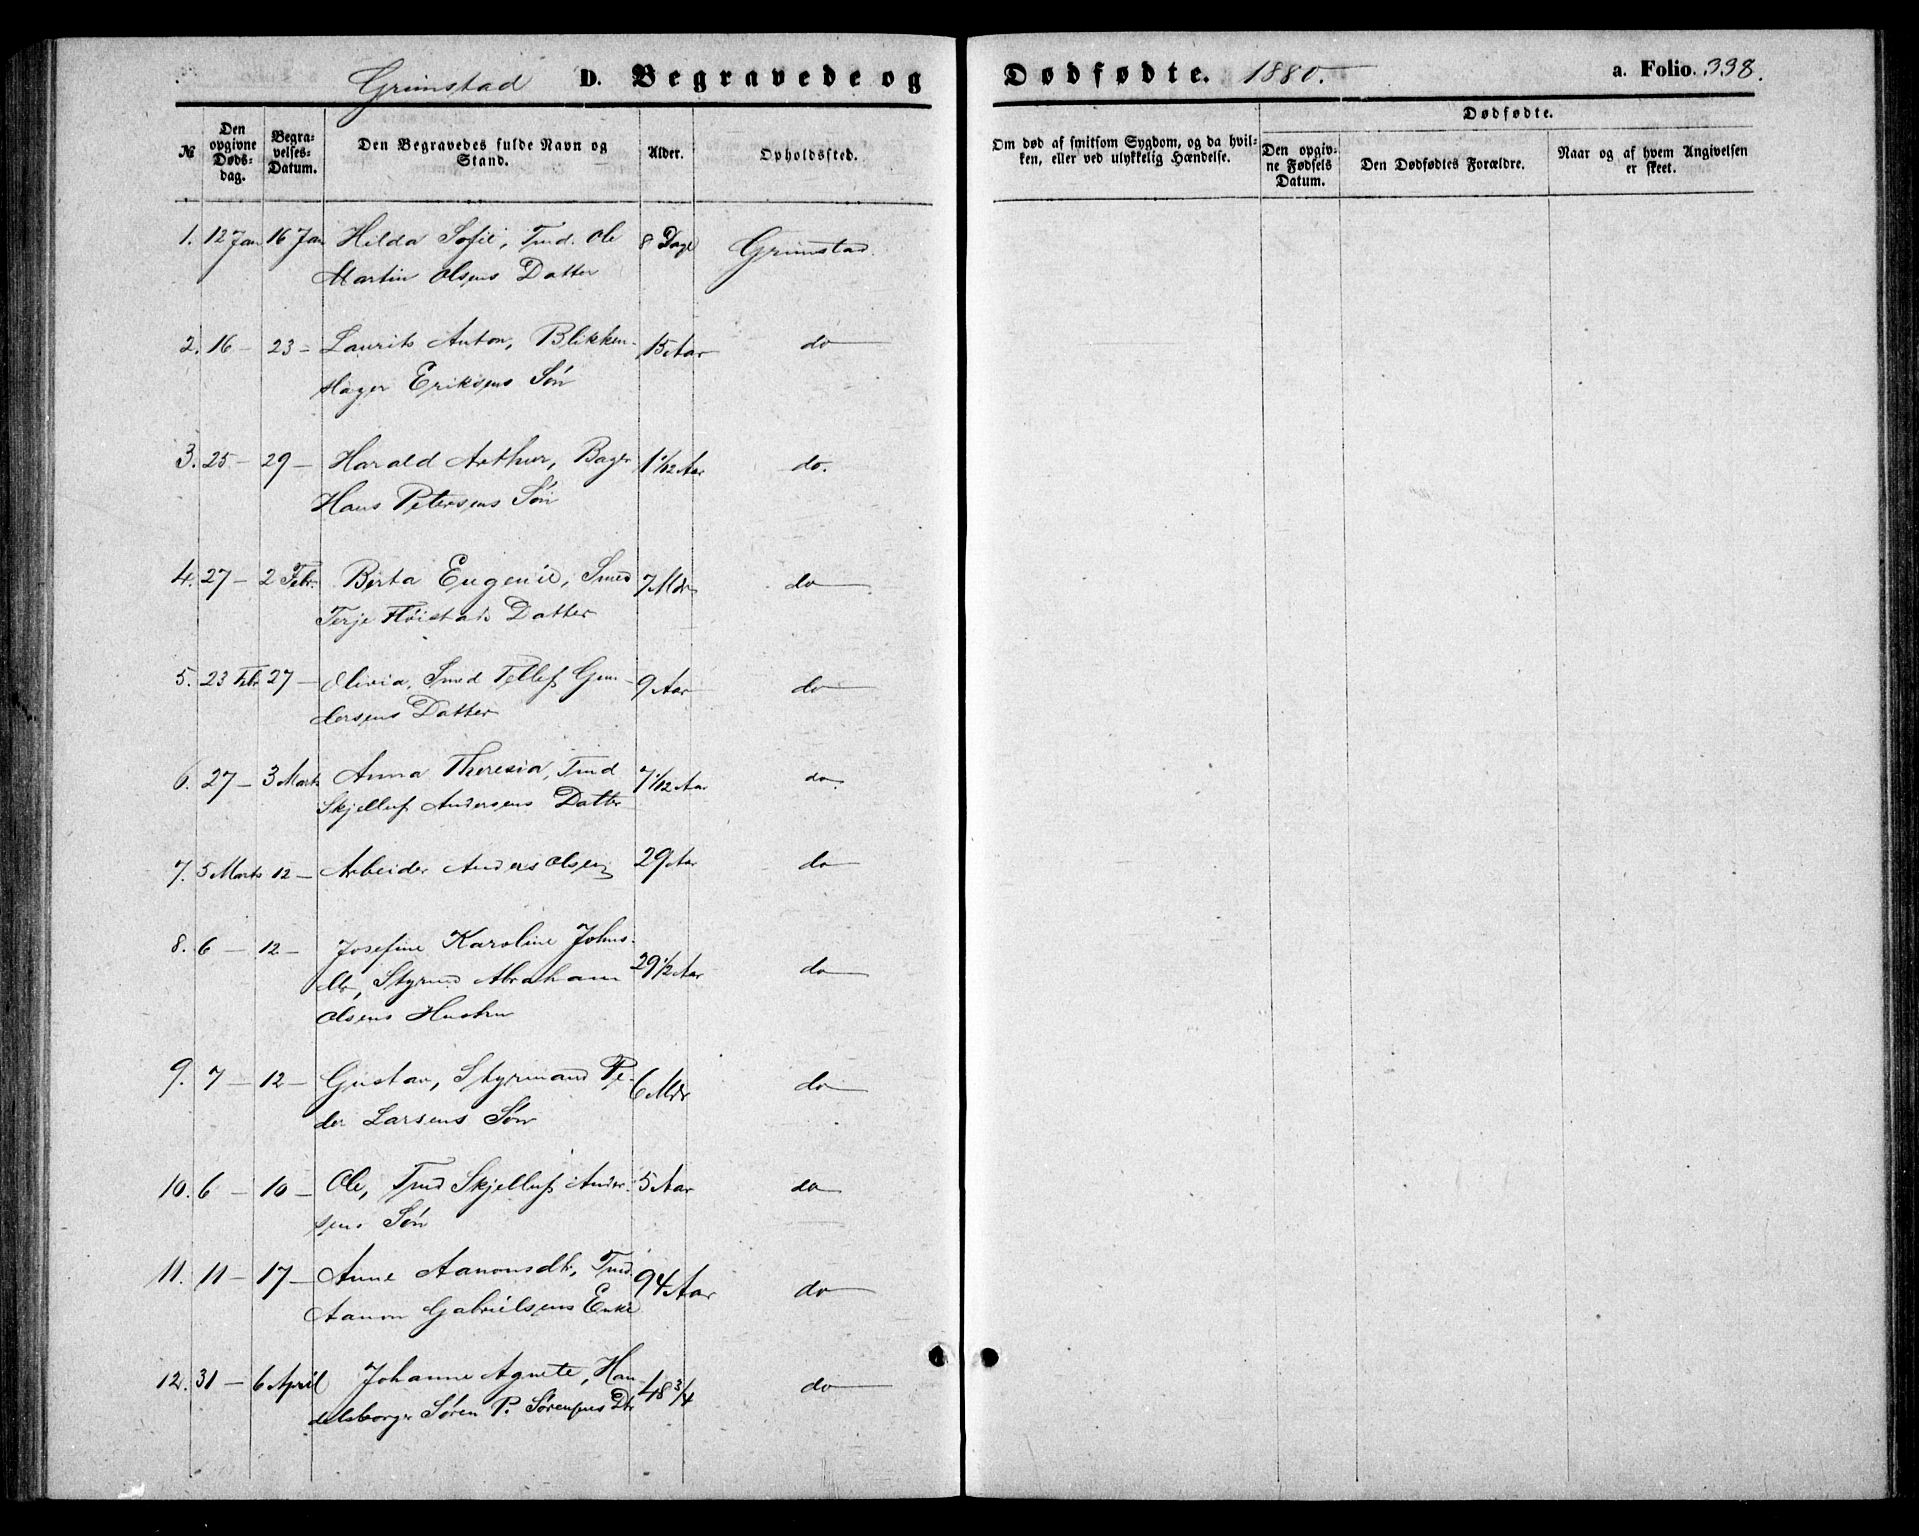 Grimstad D. Begravede og Dødfødte. 1880. a. Folio. 338.
№ Den opgivne Dødsdag. Begravelses-Datum. Den Begravedes fulde Navn og Stand. Alder. Opholdssted. Om død af smitsom Sygdom, og da hvilken, eller ved ulykkelig Hændelse. Dødfødte. Den opgivne Fødsels Datum. Den Dødfødtes Forældre. Naar og af hvem Angivelsen er skeet.
1. 12 Jan 16 Jan Hilda Sofie, Tmd. Ole 8 Dage Grimstad.
Martin Olsens Datter
2. 16 — 23 — Laurits Anton, Blikken- 15 Aar do
slager Eriksens Søn
3. 25 — 29 — Harald Arthur, Bager 1 1/12 Aar do.
Hans Petersens Søn
4. 27 — 2 Febr. Berta Eugenie, Smed 7 Mdr do
Terje Høistads Datter
5. 23 Febr 27 — Olivia, Smed Tellef Gun- 9 Aar do
dersens Datter
6. 27 — 3 Marts Anna Theresia, Tmd 7 1/12 Aar do.
Skjelluf Andersens Datter
7. 5 Marts 12 — Arbeider Anders Olsen 29 Aar do
8. 6 — 12 — Josefine Karoline Johns-
dtr, Styrmd Abraham 29 1/2 Aar do
Olsens Hustru
9. 7 — 12 — Gustav, Styrmand Pe- 6 Mdr do
der Larsens Søn
10. 6 — 10 — Ole, Tmd Skjelluf Ander- 5 Aar do
sens Søn
11. 11 — 17 — Anne Aanonsdtr, Tmd. 94 Aar do
Aanon Gabrielsens Enke
12. 31 — 6 April Johanne Agnete, Han- 48 3/4 do
delsborger Søren P. Sørensens Dtr